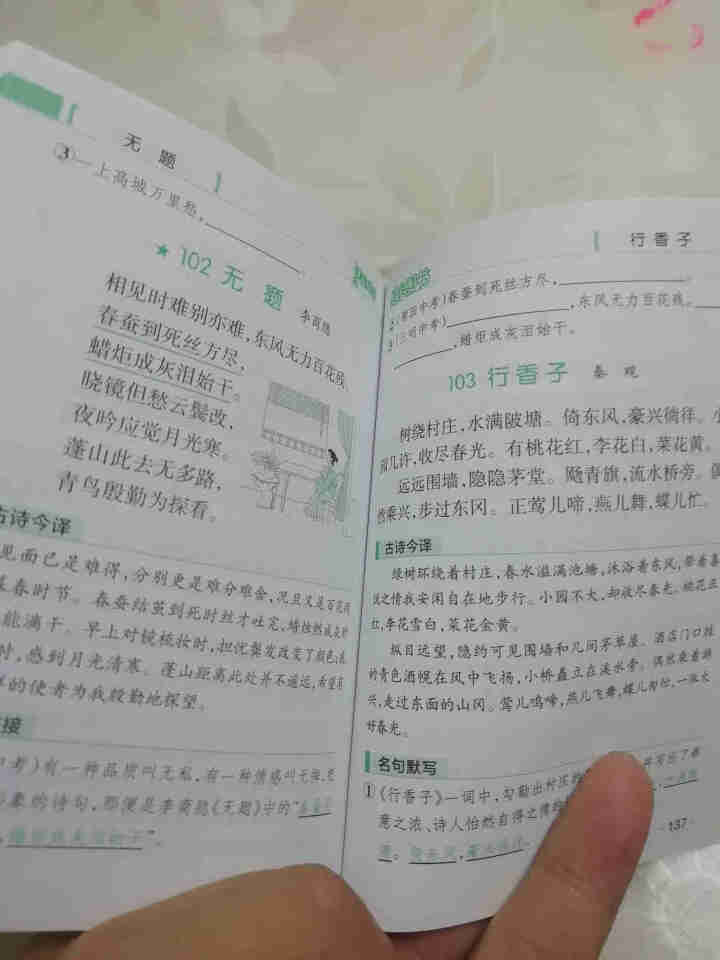 无题
③一上高城万里愁，
★ 102 无题
李商隐
相见时难别亦难，东风无力百花残。
春蚕到死丝方尽，
蜡炬成灰泪始干。
晓镜但愁云鬓改，
夜吟应觉月光寒。
蓬山此去无多路，
青鸟殷勤为探看。
古诗今译
见面已是难得，分别更是难分难舍，况且又是百花
春时节。春蚕结茧到死时丝才吐完，蜡烛燃成灰时
能滴干。早上对镜梳妆时，担忧鬓发改变了颜色；
时，感到月光清寒。蓬山距离此处并不遥远，希望有
样的使者为我殷勤地探望。
接
中考）有一种品质叫无私，有一种情感叫无悔，
象的诗句，那便是李商隐《无题》中的“春蚕
，蜡炬成灰泪始干”。
行香子
2 中考)春蚕到死丝方尽，
3 中考) ，东风无力百花残。
，蜡炬成灰泪始干。
103 行香子 秦观
树绕村庄，水满陂塘。倚东风，豪兴徜徉。小
园几许，收尽春光。有桃花红，李花白，菜花黄。
远远围墙，隐隐茅堂。飏青旗，流水桥旁。偶
然乘兴，步过东冈。正莺儿啼，燕儿舞，蝶儿忙。
古诗今译
绿树环绕着村庄，春水溢满池塘，沐浴着东风，带着喜
悦之情我安闲自在地步行。小园不大，却收尽春光。桃花正
红，李花雪白，菜花金黄。
纵目远望，隐约可见围墙和几间茅草屋。酒店门口挂
的青色酒幌在风中飞扬，小桥矗立在溪水旁。偶然乘着游
兴，走过东面的山冈。莺儿鸣啼，燕儿飞舞，蝶儿匆忙，一派大
好春光。
名句默写
1 《行香子》一词中，勾勒出村庄的 并写出了春
意之浓、诗人怡然自得之情
。倚东风，豪兴徜徉。
·137·